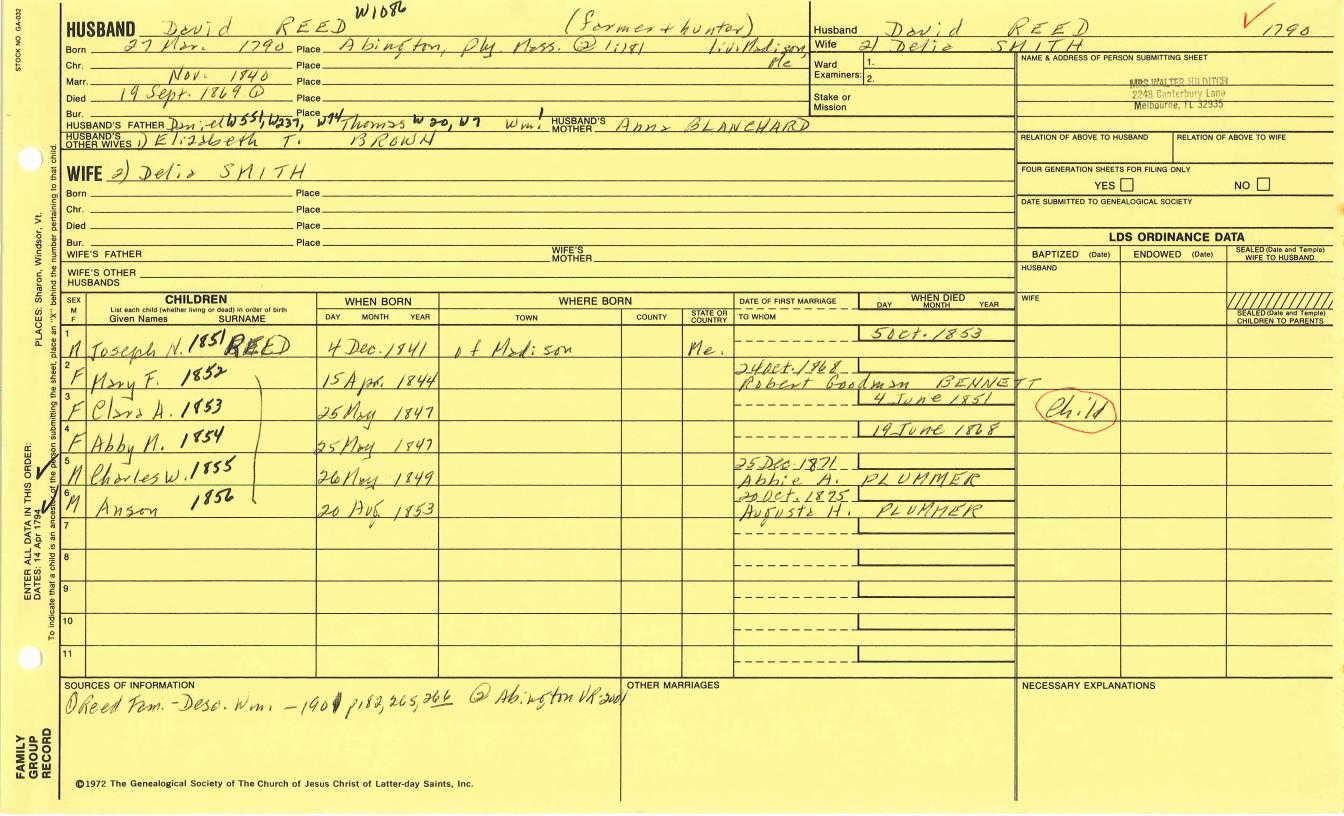 STOCK NO. GA-032
W1086
HUSBAND David REED (farmer + hunter)
Born 27 Mar. 1790 Place Abington, Ply. Mass. @ 1:181 liv. Madison, Me
Chr. Place
Marr. Nov. 1840 Place
Died 19 Sept. 1869 ① Place
Bur. Place
HUSBAND'S FATHER Daniel W551, W237, W74 Thomas W20, W7 Wm! HUSBAND'S MOTHER Anna BLANCHARD
HUSBAND'S OTHER WIVES 1) Elizabeth T. BROWN
Husband David REED 1790
Wife 2) Delia SMITH
Ward 1.
Examiners: 2.
Stake or Mission
NAME & ADDRESS OF PERSON SUBMITTING SHEET
MRS WALTER HILDITCH
2248 Canterbury Lane
Melbourne, FL 32935
RELATION OF ABOVE TO HUSBAND RELATION OF ABOVE TO WIFE
FOUR GENERATION SHEETS FOR FILING ONLY
YES NO
DATE SUBMITTED TO GENEALOGICAL SOCIETY
WIFE 2) Delia SMITH
Born Place
Chr. Place
Died Place
Bur. Place
WIFE'S FATHER WIFE'S MOTHER
WIFE'S OTHER HUSBANDS
LDS ORDINANCE DATA
BAPTIZED (Date) ENDOWED (Date) SEALED (Date and Temple) WIFE TO HUSBAND
HUSBAND
WIFE
SEALED (Date and Temple) CHILDREN TO PARENTS
SEX M F CHILDREN List each child (whether living or dead) in order of birth Given Names SURNAME WHEN BORN DAY MONTH YEAR WHERE BORN TOWN COUNTY STATE OR COUNTRY DATE OF FIRST MARRIAGE TO WHOM WHEN DIED DAY MONTH YEAR
1 M Joseph N. 1851 REED 4 Dec. 1841 of Madison Me. 5 Oct. 1853
2 F Mary F. 1852 15 Apr. 1844 24 Oct. 1868 Robert Goodman BENNETT
3 F Clara A. 1853 25 May 1847 4 June 1851 Child
4 F Abby M. 1854 25 May 1847 19 June 1868
5 M Charles W. 1855 26 May 1849 25 Dec. 1871 Abbie A. PLUMMER
6 M Anson 1856 20 Aug 1853 20 Oct. 1875 Augusta H. PLUMMER
7
8
9
10
11
SOURCES OF INFORMATION
① Reed Fam. - Desc. Wm. - 1901 p182, 265, 266 @ Abington VR 2001
OTHER MARRIAGES
NECESSARY EXPLANATIONS
©1972 The Genealogical Society of The Church of Jesus Christ of Latter-day Saints, Inc.
FAMILY GROUP RECORD
ENTER ALL DATA IN THIS ORDER:
DATES: 14 Apr 1794
PLACES: Sharon, Windsor, Vt.
To indicate that a child is an ancestor of the person submitting the sheet, place an "X" behind the number pertaining to that child.